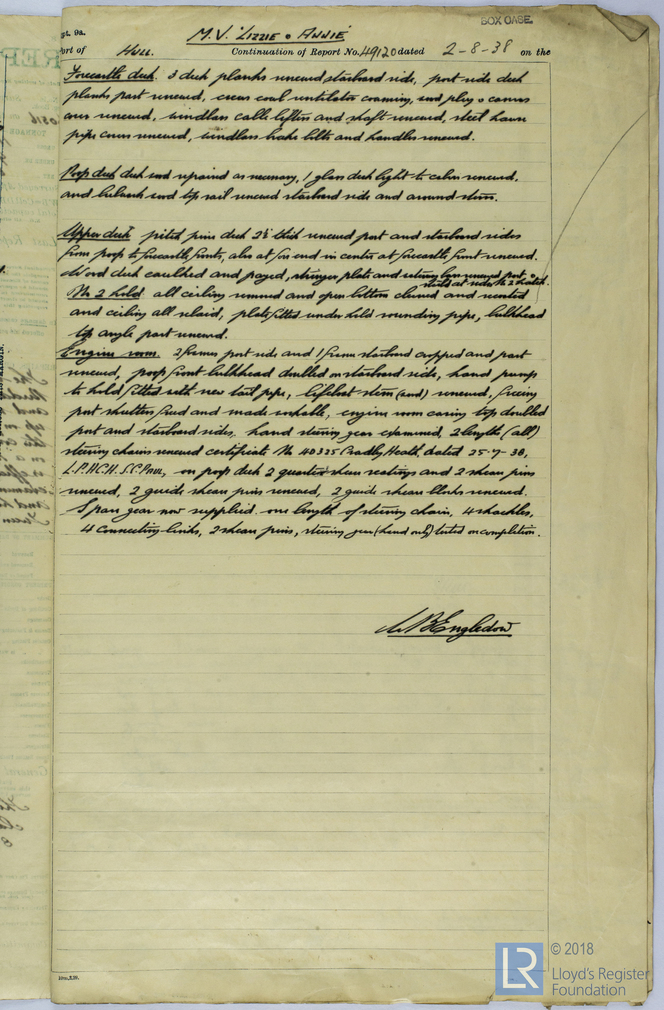 BOX CASE.
Rpt. 9a.
M.V. "LIZZIE & ANNIE"
Port of HULL. Continuation of Report No. 49120 dated 2-8-38 on the
Forecastle deck. 3 deck planks renewed starboard side, port side deck
planks part renewed, crews coal ventilator coaming, wood plug & canvas
cover renewed, windlass cable lifters and shaft renewed, steel hawse
pipe covers renewed, windlass brake bolts and handles renewed.
Poop deck deck wood repaired as necessary, 1 glass deck light to cabin renewed,
and bulwark wood top rail renewed starboard side and around stern.
Upper deck pitch pine deck 2½" thick renewed port and starboard sides
from poop to forecastle fronts, also at fore end in centre at forecastle front renewed.
Wood deck caulked and payed, stringer plate and renewed port &
starbd at sides No 2 hatch.
No 2 hold all ceiling removed and open bottom cleaned and cemented
and ceiling all relaid, plate fitted under hold sounding pipe, bulkhead
top angle part renewed.
Engine room. 2 frames port side and 1 frame starboard cropped and part
renewed, poop front bulkhead doubled on starboard side, hand pump
to hold fitted with new tail pipe, lifeboat stem (wood) renewed, freeing
port shutters freed and made workable, engine room casing top doubled
port and starboard sides, hand steering gear examined, 2 lengths (all)
steering chains renewed certificate No 40325 Cradley Heath dated 25-7-38,
L.P.H.C.H. S.C. Paul, on poop deck 2 quarter sheave seatings and 2 sheave pins
renewed, 2 guide sheave pins renewed, 2 guide sheave blocks renewed.
Spare gear now supplied one length of steering chain, 4 shackles,
4 connecting links, 2 sheave pins, steering gear (hand only) tested on completion.
Engledow
© 2018
Lloyd's Register
Foundation
LR